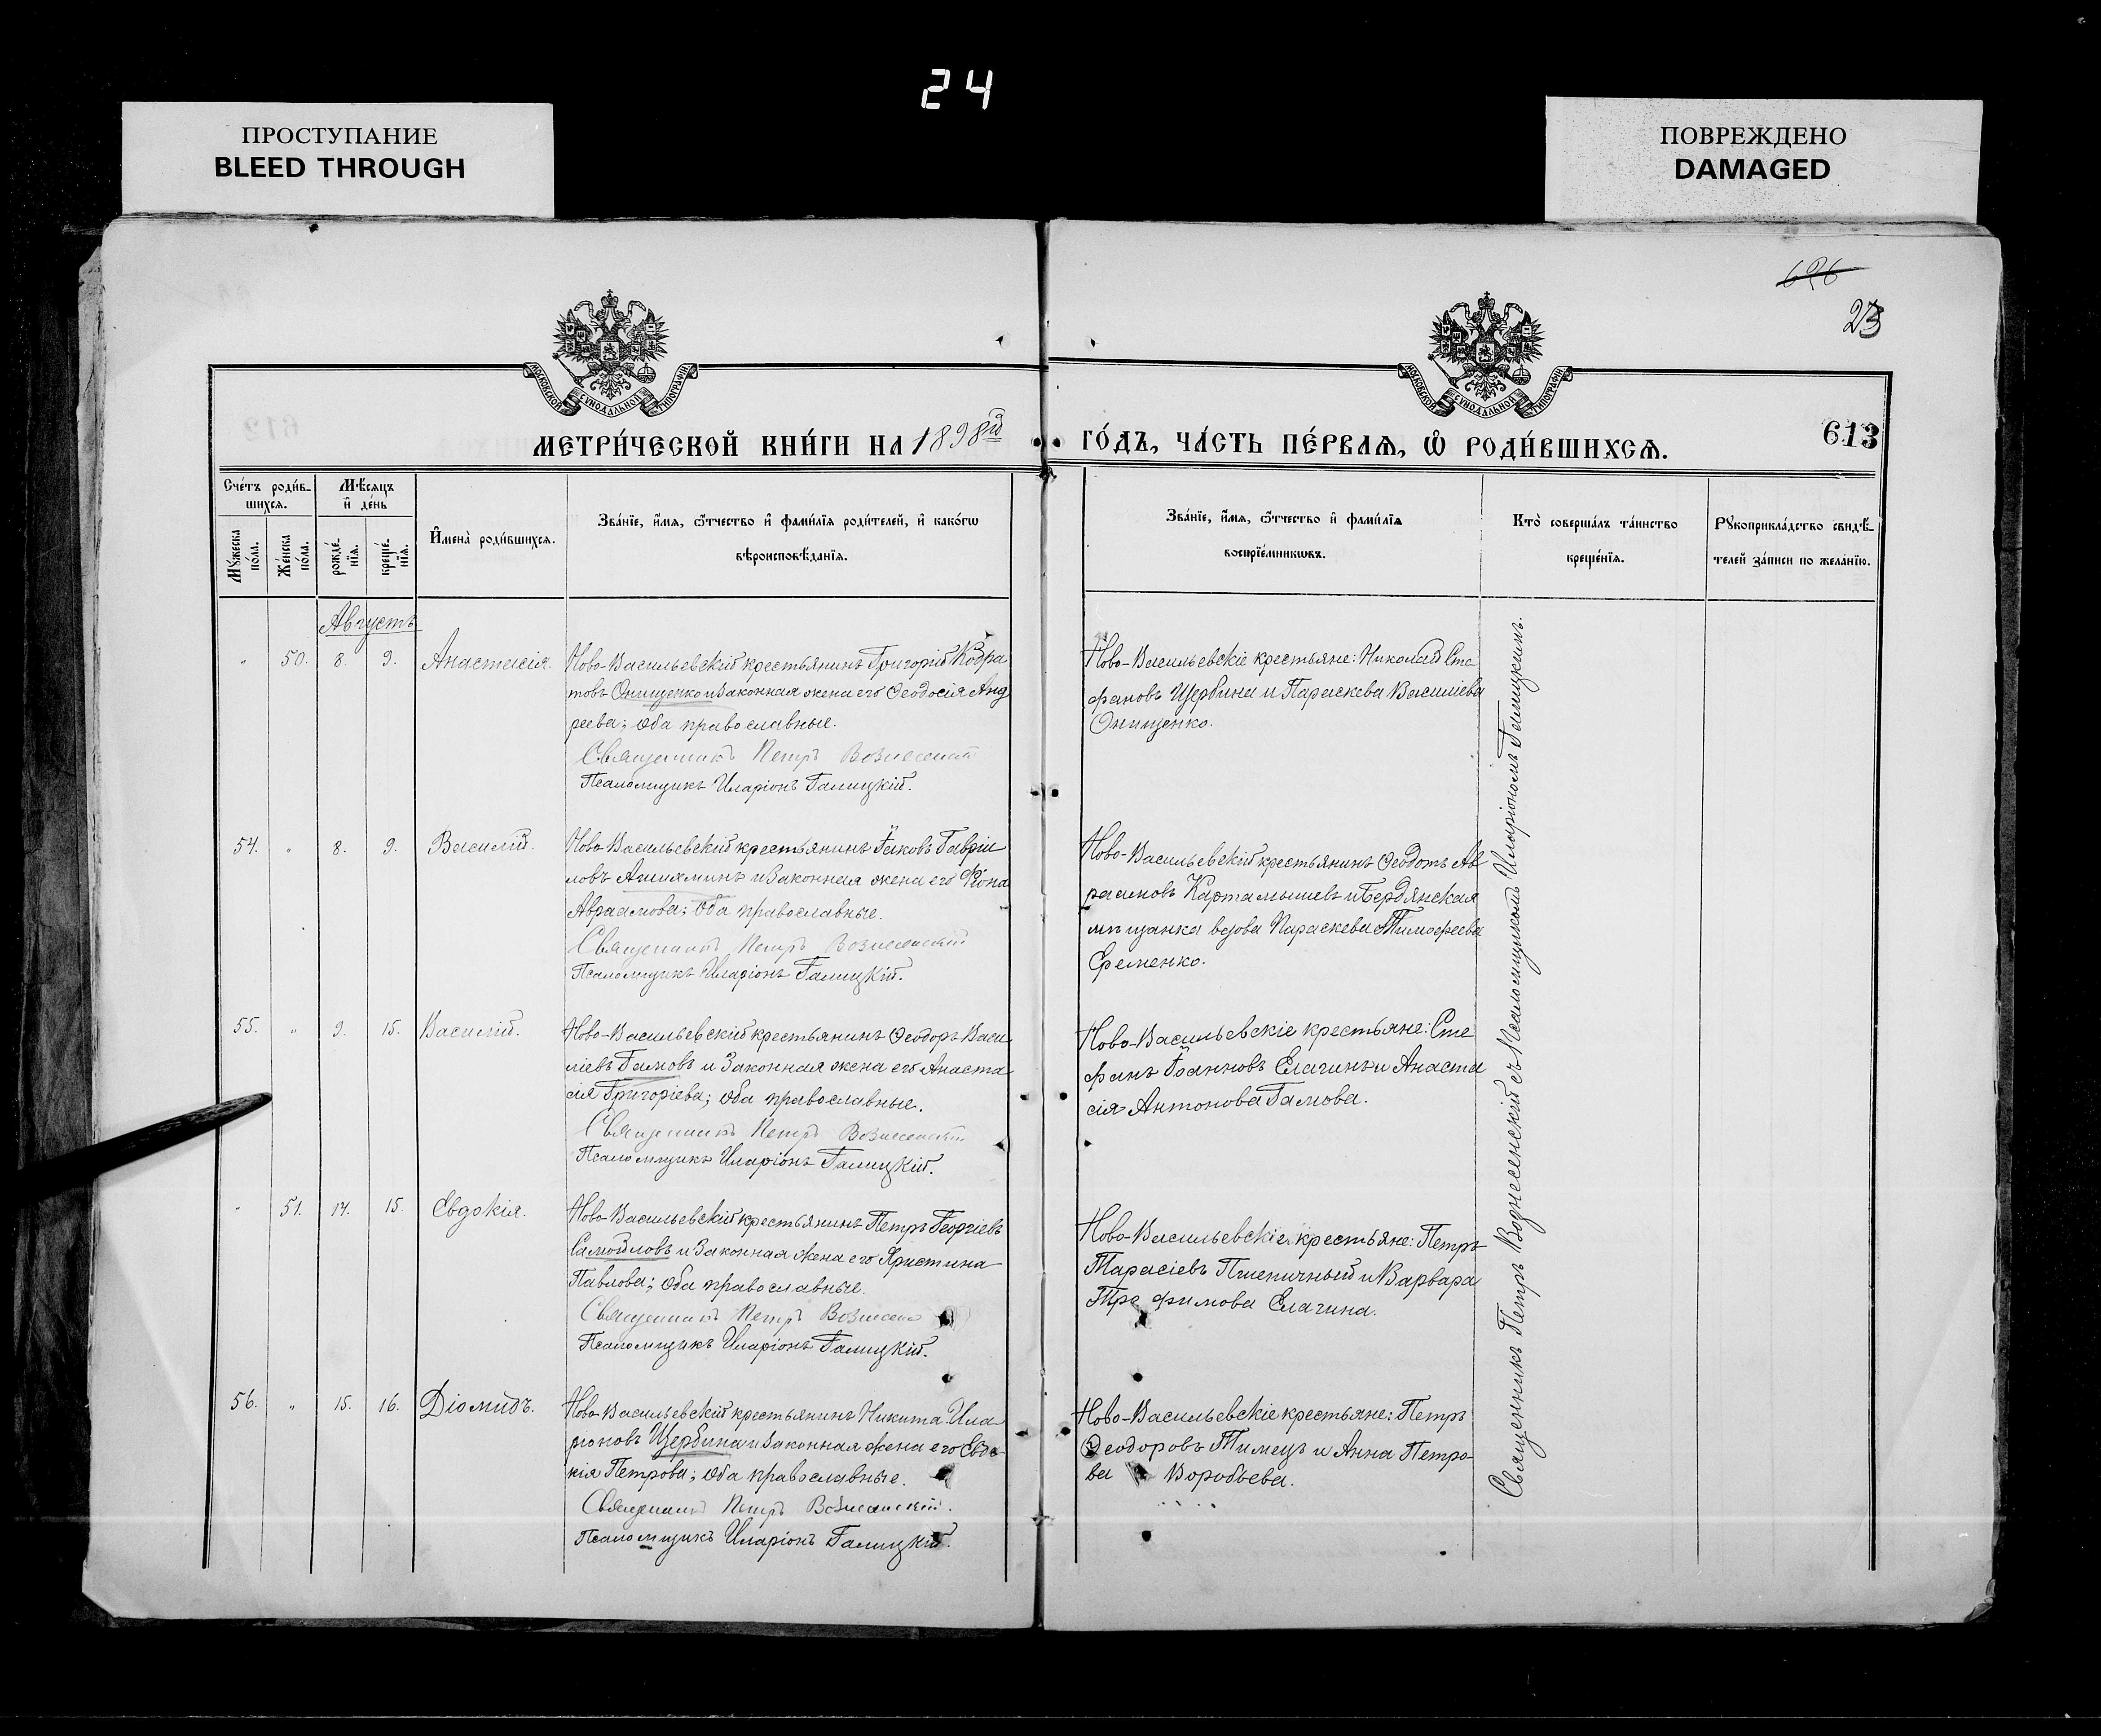 24
ПРОСТУПАНИЕ
BLEED THROUGH
ПОВРЕЖДЕНО
DAMAGED
626
23
МОСКОВСКОЙ СѴНОДАЛЬНОЙ ТИПОГРАФІИ
МОСКОВСКОЙ СѴНОДАЛЬНОЙ ТИПОГРАФІИ
МЕТРИ́ЧЕСКОЙ КНИ́ГИ НА 1898й ГО́ДЪ, ЧА́СТЬ ПЕ́РВАѦ, Ѡ РОДИ́ВШИХСѦ.
613
Сче́тъ роди́в-
шихсѧ.
Мѣ́сѧцъ
и҆ де́нь
Мꙋ́жеска по́ла.
Же́нска по́ла.
рожде́-нїѧ.
креще́-нїѧ.
И҆мена̀ роди́вшихсѧ.
Зва́нїе, и҆́мѧ, ѻ҆́тчество и҆ фами́лїѧ роди́телей, и҆ како́гѡ
вѣроисповѣ́данїѧ.
Зва́нїе, и҆́мѧ, ѻ҆́тчество и҆ фами́лїѧ
воспрїе́мникѡвъ.
Кто̀ соверша́лъ та́инство
креще́нїѧ.
Рꙋкоприкла́дство свидѣ́-
телей за́писи по жела́нїю.
Августъ
" 50. 8. 9. Анастасія.
Ново-Васильевскій крестьянинъ Григорій Кодра
товъ Онищенко и законная жена его Ѳеодосія Анд
реева; оба православные.
Священникъ Петръ Вознесенскій
Псаломщикъ Иларіонъ Галицкій.
Ново-Васильевскіе крестьяне: Николай Сте
фановъ Щербина и Параскева Василіева
Онищенко.
54. " 8. 9. Василій.
Ново-Васильевскій крестьянинъ Іаковъ Гавріи
ловъ Ашихминъ и законная жена его Ѳеона
Авраамова; оба православные.
Священникъ Петръ Вознесенскій
Псаломщикъ Иларіонъ Галицкій.
Ново-Васильевскій крестьянинъ Ѳеодотъ Ав
раамовъ Картамышевъ и Бердянская
мѣщанка вдова Параскева Тимофеева
Еременко.
55. " 9. 15. Василій.
Ново-Васильевскій крестьянинъ Ѳеодоръ Васи
ліевъ Гамовъ и законная жена его Анаста
сія Григоріева; оба православные.
Священникъ Петръ Вознесенскій
Псаломщикъ Иларіонъ Галицкій.
Ново-Васильевскіе крестьяне: Сте
фанъ Іоанновъ Елагинъ и Анаста
сія Антонова Гамова.
" 51. 14. 15. Евдокія.
Ново-Васильевскій крестьянинъ Петръ Георгіевъ
Самойловъ и законная жена его Христина
Павлова; оба православные.
Священникъ Петръ Вознесен
Псаломщикъ Иларіонъ Галицкій.
Ново-Васильевскіе крестьяне: Петръ
Тарасіевъ Пшеничный и Варвара
Трофимова Елагина.
56. " 15. 16. Діомидъ.
Ново-Васильевскій крестьянинъ Никита Ила
ріоновъ Щербина и законная жена его Евдо-
кія Петрова; оба православные.
Священникъ Петръ Вознесенскій.
Псаломщикъ Иларіонъ Галицкій.
Ново-Васильевскіе крестьяне: Петръ
Ѳеодоровъ Тимецъ и Анна Петро-
ва Воробьева.
Священникъ Петръ Вознесенскій съ Псаломщикомъ Иларіономъ Галицкимъ.